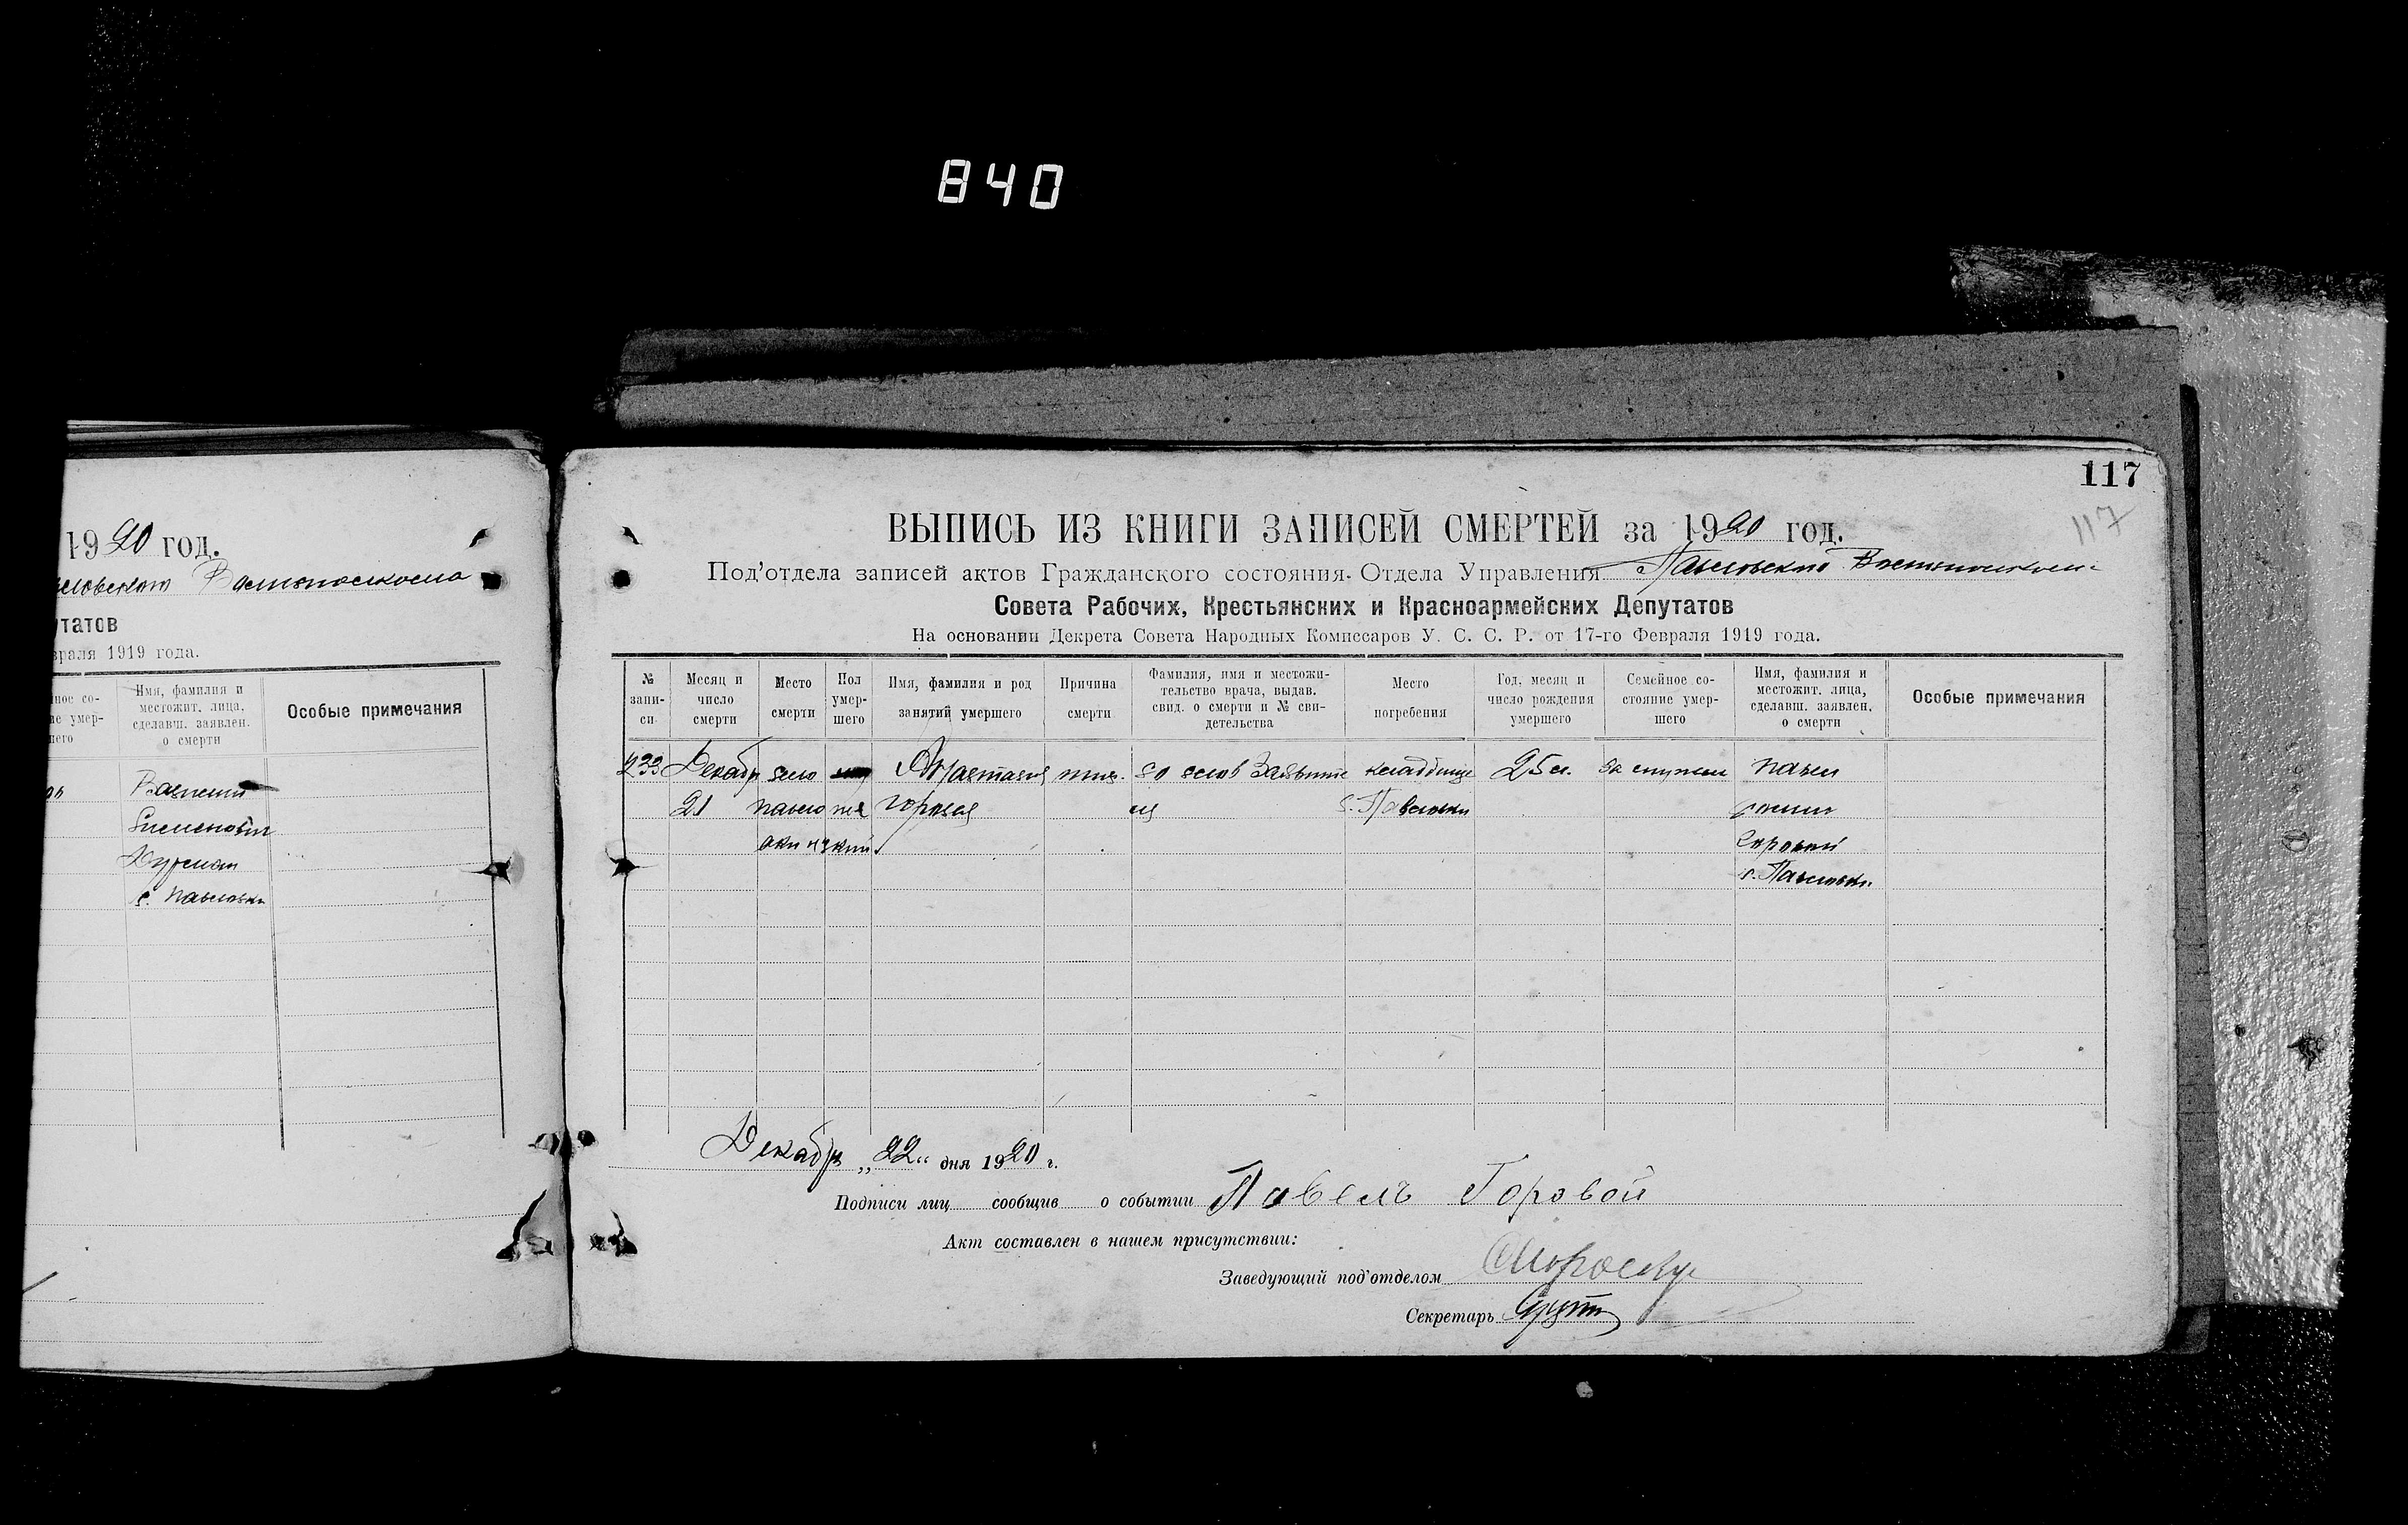 840
117
117
1920 год.
утатов
враля 1919 года.
ное со-
ие умер-
шего
Имя, фамилия и
местожит. лица,
сделавш. заявлен.
о смерти
Особые примечания
с. Павловки
ВЫПИСЬ ИЗ КНИГИ ЗАПИСЕЙ СМЕРТЕЙ за 1920 год.
Под'отдела записей актов Гражданского состояния Отдела Управления Павловского
Совета Рабочих, Крестьянских и Красноармейских Депутатов
На основании Декрета Совета Народных Комиссаров У. С. С. Р. от 17-го Февраля 1919 года.
№ запи-си
Месяц и число смерти
Место смерти
Пол умер-шего
Имя, фамилия и род занятий умершего
Причина смерти
Фамилия, имя и местожи-тельство врача, выдав. свид. о смерти и № сви-детельства
Место погребения
Год, месяц и число рождения умершего
Семейное со-стояние умер-шего
Имя, фамилия и местожит. лица, сделавш. заявлен. о смерти
Особые примечания
233 Декабр село тиф. со слов Заявите кладбище 25 л. За мужем Павел
21 Павло же Горовая ля с. Павловки
вки нский
Горовой
с. Павловки
Декабря „22“ дня 1920 г.
Подписи лиц сообщив о событии Павелъ Горовой
Акт составлен в нашем присутствии:
Заведующий под'отделом
Секретарь